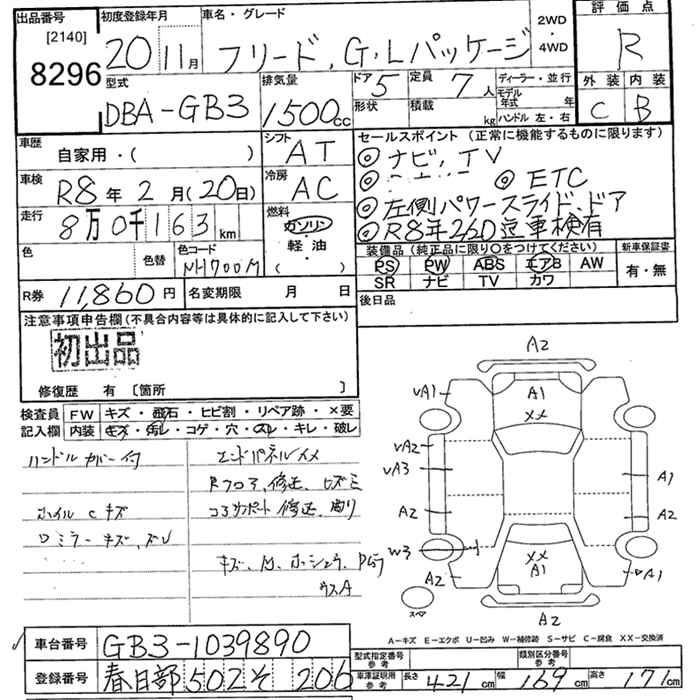 出品番号 初度登録年月 車名・グレード 2WD・4WD 評価点
[2140] 8296 20 11月 フリード、G・Lパッケージ R
型式 排気量 ドア 定員 ディーラー・並行 外装 内装
DBA-GB3 1500cc 5 7人 モデル年式 年 C B
形状 積載 kg ハンドル 左・右
車歴 シフト セールスポイント (正常に機能するものに限ります)
自家用・( ) AT ◎ナビ、TV
車検 冷房 ◎ ◎ETC
R8年2月(20日) AC ◎左側パワースライドドア
走行 燃料 ◎R8年2/20迄車検有
8万0千163km ガソリン・軽・油
色 色替 色コード ( ) 装備品(純正品に限り○をつけてください) 新車保証書
NH700M PS PW ABS エアB AW 有・無
SR ナビ TV カワ
R券 11,860円 名変期限 月 日 後日品
注意事項申告欄(不具合内容等は具体的に記入して下さい)
初出品
修復歴 有 〔箇所 〕
検査員 FW キズ・飛石・ヒビ割・リペア跡・×要
記入欄 内装 キズ・汚レ・コゲ・穴・スレ・キレ・破レ
ハンドルカバー付 エンドパネルメ
Rフロア、修正、ヒズミ
ホイルCキズ コアサポート修正、曲り
ロミラーキズ、ズレ
A2
VA1 A1
XX
VA2
VA3 A1
A2 A2
W3
XX
A1
A2 VA1
A2
スペア
A-キズ E-エクボ U-凹み W-補修跡 S-サビ C-腐食 XX-交換済
車台番号 GB3-1039890 型式指定番号 参考 類別区分番号 参考
登録番号 春日部502そ206 車庫証明用参考 長さ421cm 幅169cm 高さ171cm